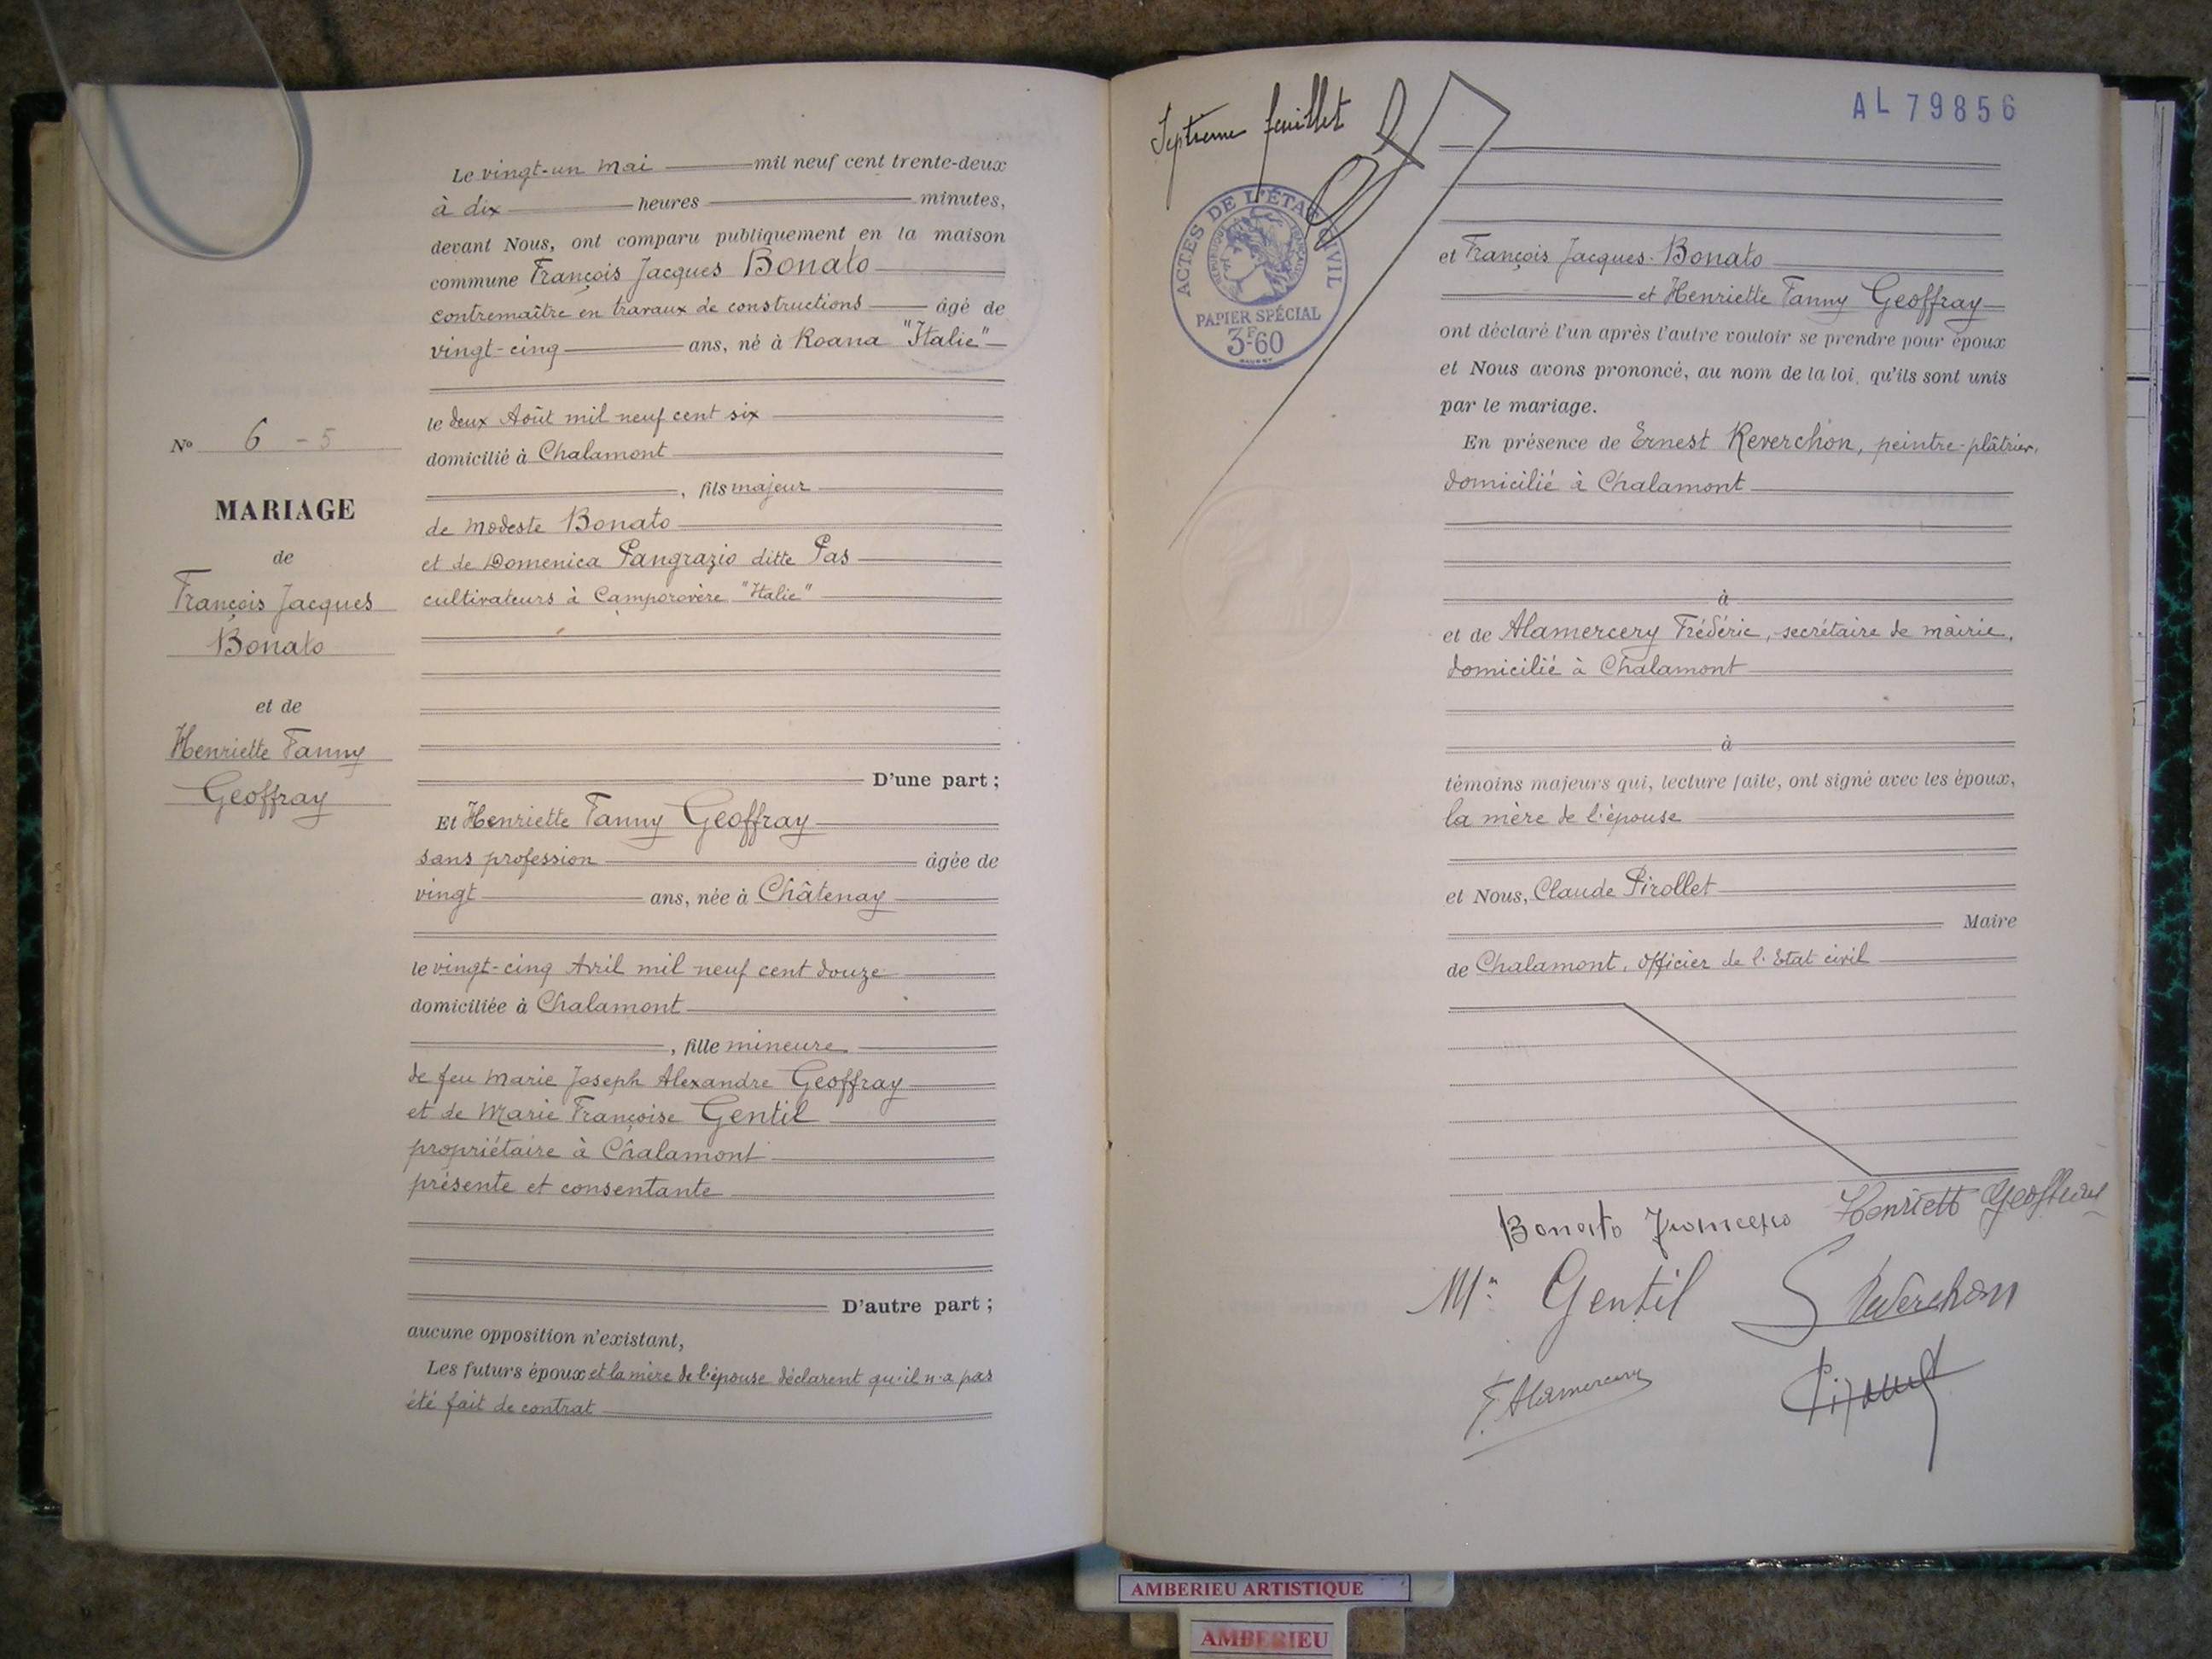 Le vingt-un mai mil neuf cent trente-deux
à dix heures minutes,
devant Nous, ont comparu publiquement en la maison
commune François Jacques Bonato
contremaître en travaux de constructions âgé de
vingt-cinq ans, né à Roana "Italie"
le deux Août mil neuf cent six
domicilié à Chalamont
, fils majeur
de Modeste Bonato
et de Domenica Pangrazio ditte Pas
cultivateurs à Camporovère "Italie"
D'une part ;
Et Henriette Fanny Geoffray
sans profession âgée de
vingt ans, née à Châtenay
le vingt-cinq Avril mil neuf cent douze
domiciliée à Chalamont
, fille mineure
de feu Marie Joseph Alexandre Geoffray
et de Marie Françoise Gentil
propriétaire à Chalamont
présente et consentante
D'autre part ;
aucune opposition n'existant,
Les futurs époux et la mère de l'épouse déclarent qu'il n'a pas
été fait de contrat
N° 6 - 5
MARIAGE
de
François Jacques
Bonato
et de
Henriette Fanny
Geoffray
Septième feuillet
AL 79856
ACTES DE L'ÉTAT CIVIL
RÉPUBLIQUE FRANÇAISE
PAPIER SPÉCIAL
3F60
et François Jacques Bonato
et Henriette Fanny Geoffray
ont déclaré l'un après l'autre vouloir se prendre pour époux
et Nous avons prononcé, au nom de la loi, qu'ils sont unis
par le mariage.
En présence de Ernest Reverchon, peintre-plâtrier,
domicilié à Chalamont
à
et de Alamercery Frédéric, secrétaire de mairie,
domicilié à Chalamont
à
témoins majeurs qui, lecture faite, ont signé avec les époux,
la mère de l'épouse
et Nous, Claude Pirollet
Maire
de Chalamont, officier de l'Etat civil
Bonato Francesco Henriette Geoffray
Mie Gentil Reverchon
F. Alamercery
AMBERIEU ARTISTIQUE
AMBERIEU